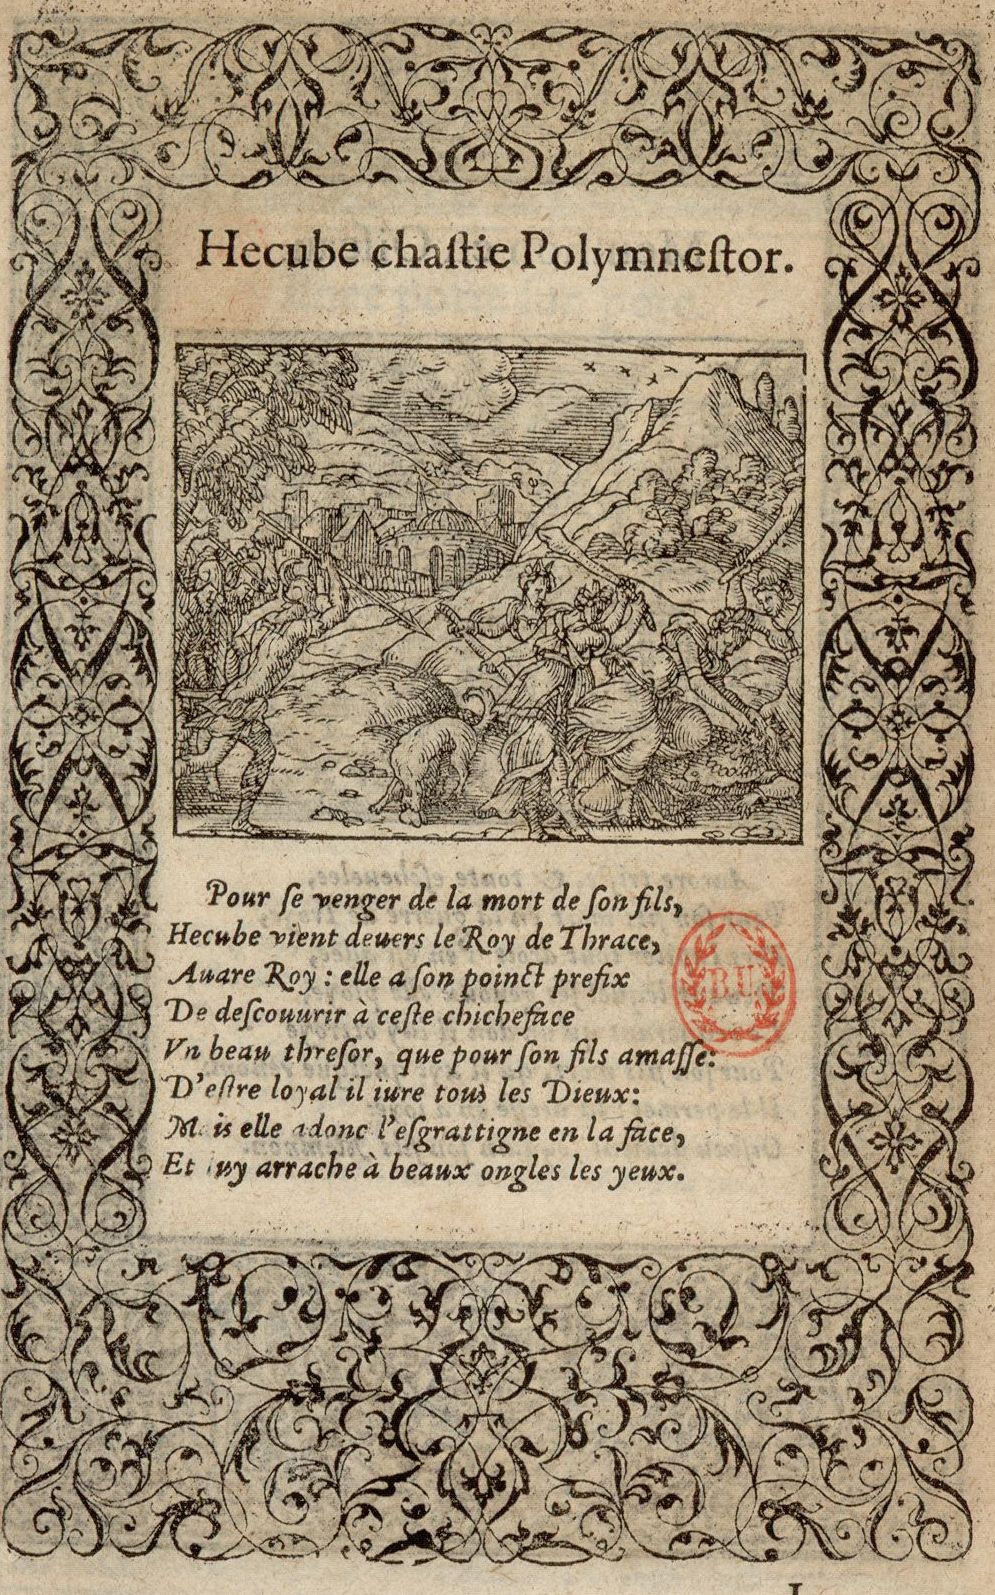 Hecube chaſtie Polymneſtor.
Pour ſe venger de la mort de ſon fils,
Hecube vient deuers le Roy de Thrace,
Auare Roy : elle a ſon poinct prefix
De deſcouurir à ceſte chicheface
Vn beau threſor, que pour ſon fils amaſſe:
D'eſtre loyal il iure tous les Dieux:
Mais elle adonc l'eſgrattigne en la face,
Et luy arrache à beaux ongles les yeux.
B.U.